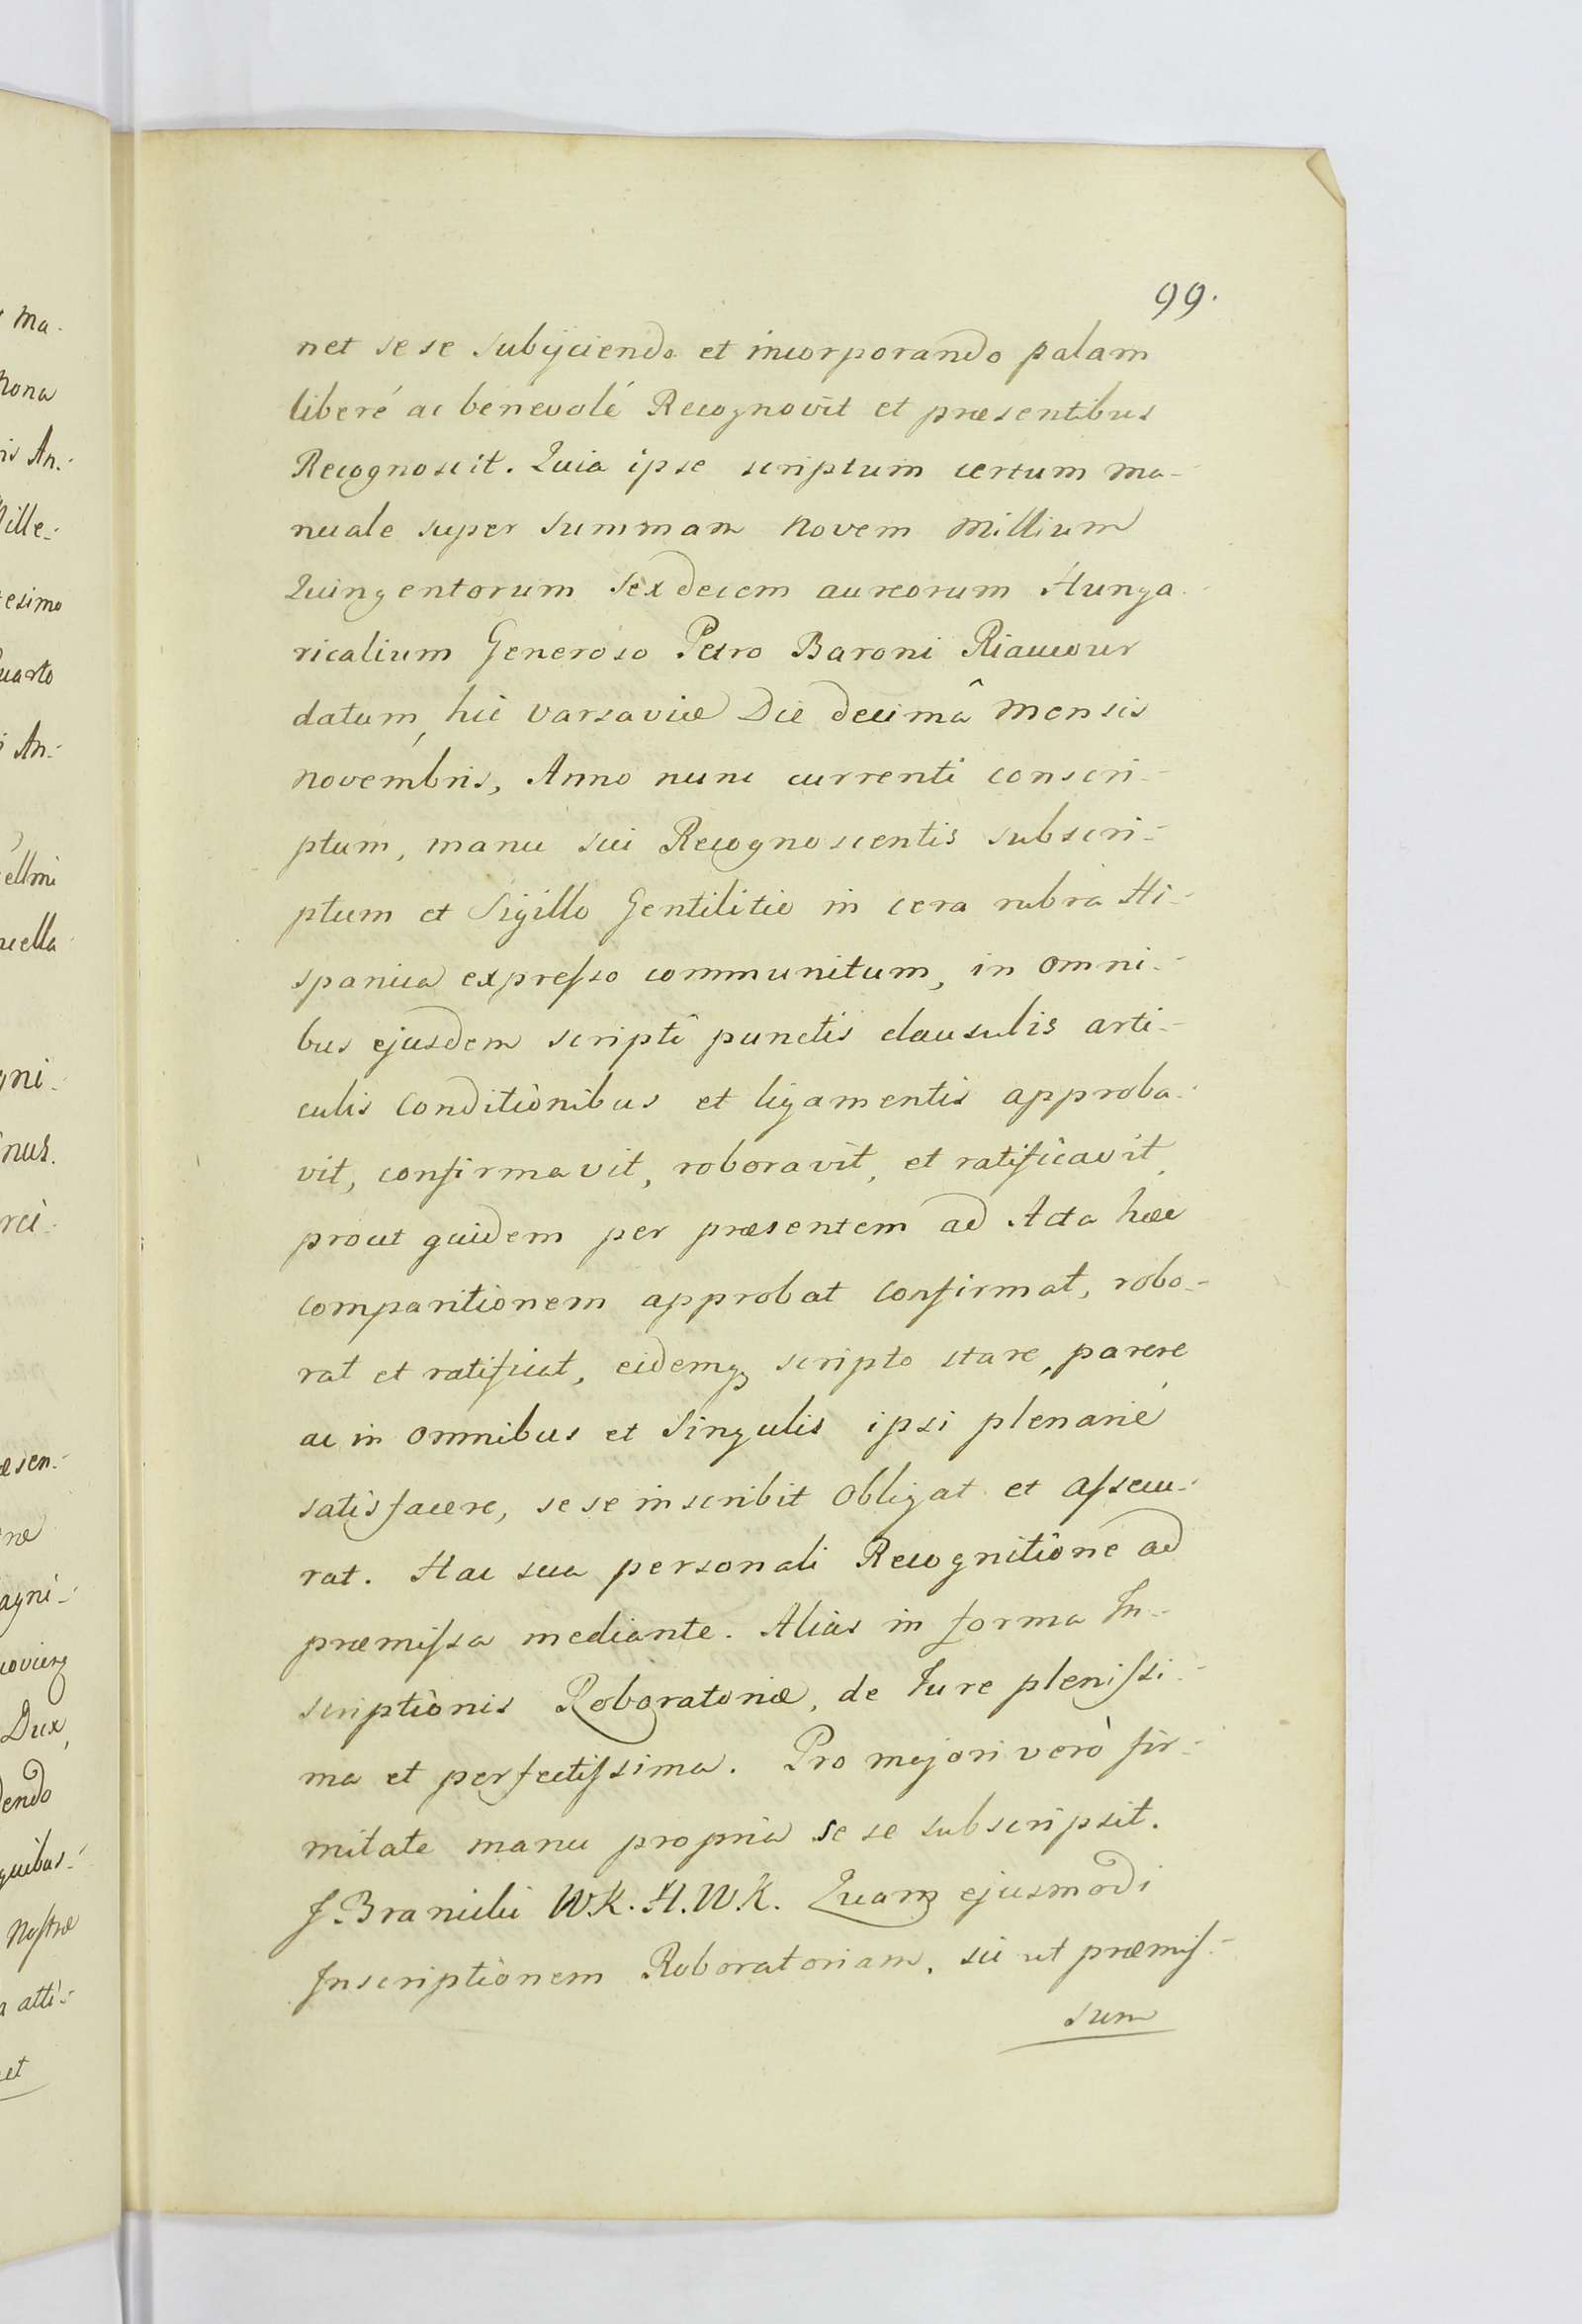 99.
net sese subijciendo et incorporando palam
liberé ac benevolé Recognovit et præsentibus
Recognoscit. Quia ipse scriptum certum ma-
nuale super Summam Novem Millium
Quingentorum Sexdecem aureorum Hunga-
ricalium Generoso Petro Baroni Riaucour
datum, hic Varsaviæ Die decimâ Mensis
Novembris, Anno nunc currenti conscri-
ptum, manu sui Recognoscentis subscri-
ptum et Sigillo Gentilitio in cera rubra Hi-
spanica expresso communitum, in omni-
bus ejusdem scripti punctis clausulis arti-
culis Conditionibus et ligamentis approba-
vit, confirmavit, roboravit, et ratificavit,
prout quidem per præsentem ad Acta hæc
comparitionem approbat confirmat, robo-
rat et ratificat, eidemq scripto stare, parere
ac in omnibus et Singulis ipsi plenarié
satisfacere, sese inscribit obligat et assecu-
rat. Hac sua personali Recognitione ad
præmissa mediante. Alias in forma In-
scriptionis Roboratoriæ, de Iure plenissi-
ma et perfectissima. Pro majori verò fir-
mitate manu propria sese subscripsit.
J. Branicki W.K.H.W.K. Quam ejusmodi
Inscriptionem Roboratoriam, sic ut præmis-
sum
Ma-
Nona
is An-
Mille-
esimo
Quarto
An-
ellmi
uella
gni-
inus.
rci-
æsen-
agni-
Dux,
dendo
quibus-
Nostræ
a atti-
et